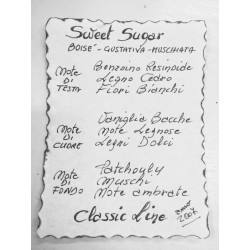 Sweet Sugar
BOISÉ - GUSTATIVA - MUSCHIATA
NOTE DI TESTA
Benzoino Resinoide
Legno Cedro
Fiori Bianchi
NOTE DI CUORE
Vaniglia Bacche
Note Legnose
Legni Dolci
NOTE DI FONDO
Patchouly
Muschi
Note ambrate
Classic Line
anno 2007